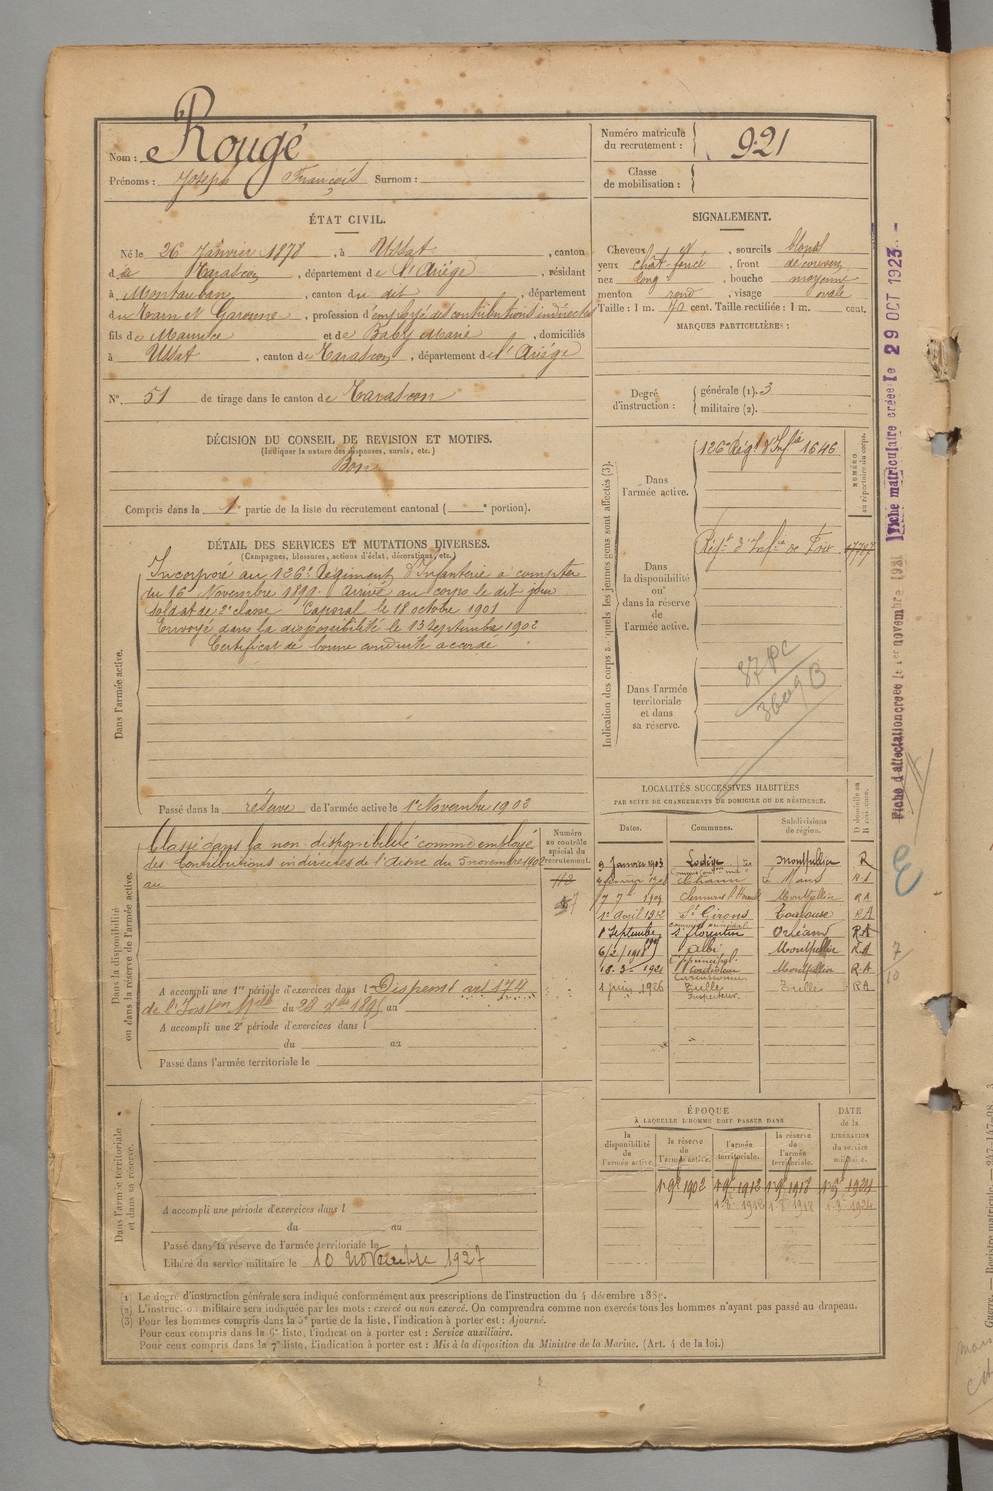 Nom : Rougé
Prénoms : Joseph François Surnom :
Numéro matricule du recrutement : 921
Classe de mobilisation :
ÉTAT CIVIL.
Né le 26 Janvier 1878, à Ussat, canton
de Tarascon, département de l'Ariége, résidant
à Montauban, canton du dit, département
du Tarn et Garonne, profession d'employé des contributions indirectes
fils de Maurice et de Baby Marie, domiciliés
à Ussat, canton de Tarascon, département de l'Ariége
N° 51 de tirage dans le canton de Tarascon
SIGNALEMENT.
Cheveux , sourcils blond
yeux chât. foncé, front découvert
nez long, bouche moyenne
menton rond, visage ovale
Taille : 1 m. 70 cent. Taille rectifiée : 1 m. cent.
MARQUES PARTICULIÈRES :
Degré d'instruction : générale (1). 3
militaire (2).
DÉCISION DU CONSEIL DE REVISION ET MOTIFS.
(Indiquer la nature des dispenses, sursis, etc.)
Bon
Compris dans la 1e partie de la liste du recrutement cantonal ( e portion).
DÉTAIL DES SERVICES ET MUTATIONS DIVERSES.
(Campagnes, blessures, actions d'éclat, décorations, etc.)
Dans l'armée active.
Incorporé au 126e Régiment d'Infanterie à compter
du 16 Novembre 1899. Arrivé au corps le dit jour
soldat de 2e classe Caporal le 18 octobre 1901
Envoyé dans la disponibilité le 13 Septembre 1902
Certificat de bonne conduite accordé
Passé dans la réserve de l'armée active le 1er Novembre 1902
Indication des corps auxquels les jeunes gens sont affectés (3).
NUMÉRO au répertoire du corps.
Dans l'armée active.
126e Régt d'Infie 1646
Dans la disponibilité ou dans la réserve de l'armée active.
Régt d'Infie de Foix
Dans l'armée territoriale et dans sa réserve.
Dans la disponibilité ou dans la réserve de l'armée active.
Classé dans la non-disponibilité comme employé
des Contributions indirectes de l' du 5 novembre 1902
au
Numéro au contrôle spécial du recrutement.
A accompli une 1re période d'exercices dans l Dispensé art 174
de l'Inston Mlle du 28 Xbre 1895 au
A accompli une 2e période d'exercices dans l
du au
Passé dans l'armée territoriale le
LOCALITÉS SUCCESSIVES HABITÉES
PAR SUITE DE CHANGEMENTS DE DOMICILE OU DE RÉSIDENCE.
Dates. Communes. Subdivisions de région. D domicile ou R résidence.
9 Janvier 1903 Lodève Montpellier R
Le Mans
7 7bre 1909 Clermont l'Hérault Montpellier RA
1er Avril 1912 St Girons Toulouse RA
1er Septembre St Florentin Orléans RA
6/2/1918 Albi Montpellier RA
18.3.1921 Montpellier RA
1 juin 1926 Tulle Tulle RA
Inspecteur
Dans l'armée territoriale et dans sa réserve.
A accompli une période d'exercices dans l
du au
Passé dans la réserve de l'armée territoriale le
Libéré du service militaire le 10 Novembre 1927
ÉPOQUE
À LAQUELLE L'HOMME DOIT PASSER DANS
DATE de la LIBÉRATION du service militaire.
la disponibilité de l'armée active. la réserve de l'armée active. l'armée territoriale. la réserve de l'armée territoriale.
1er 9bre 1902 1er 9bre 1912 1er 9bre 1918 1er 9bre 1924
(1) Le degré d'instruction générale sera indiqué conformément aux prescriptions de l'instruction du 4 décembre 1889.
(2) L'instruction militaire sera indiquée par les mots : exercé ou non exercé. On comprendra comme non exercés tous les hommes n'ayant pas passé au drapeau.
(3) Pour les hommes compris dans la 5e partie de la liste, l'indication à porter est : Ajourné.
Pour ceux compris dans la 6e liste, l'indication à porter est : Service auxiliaire.
Pour ceux compris dans la 7e liste, l'indication à porter est : Mis à la disposition du Ministre de la Marine. (Art. 4 de la loi.)
Fiche matriculaire créée le 29 OCT 1923
Fiche d'affectation créée le 1er novembre 1931